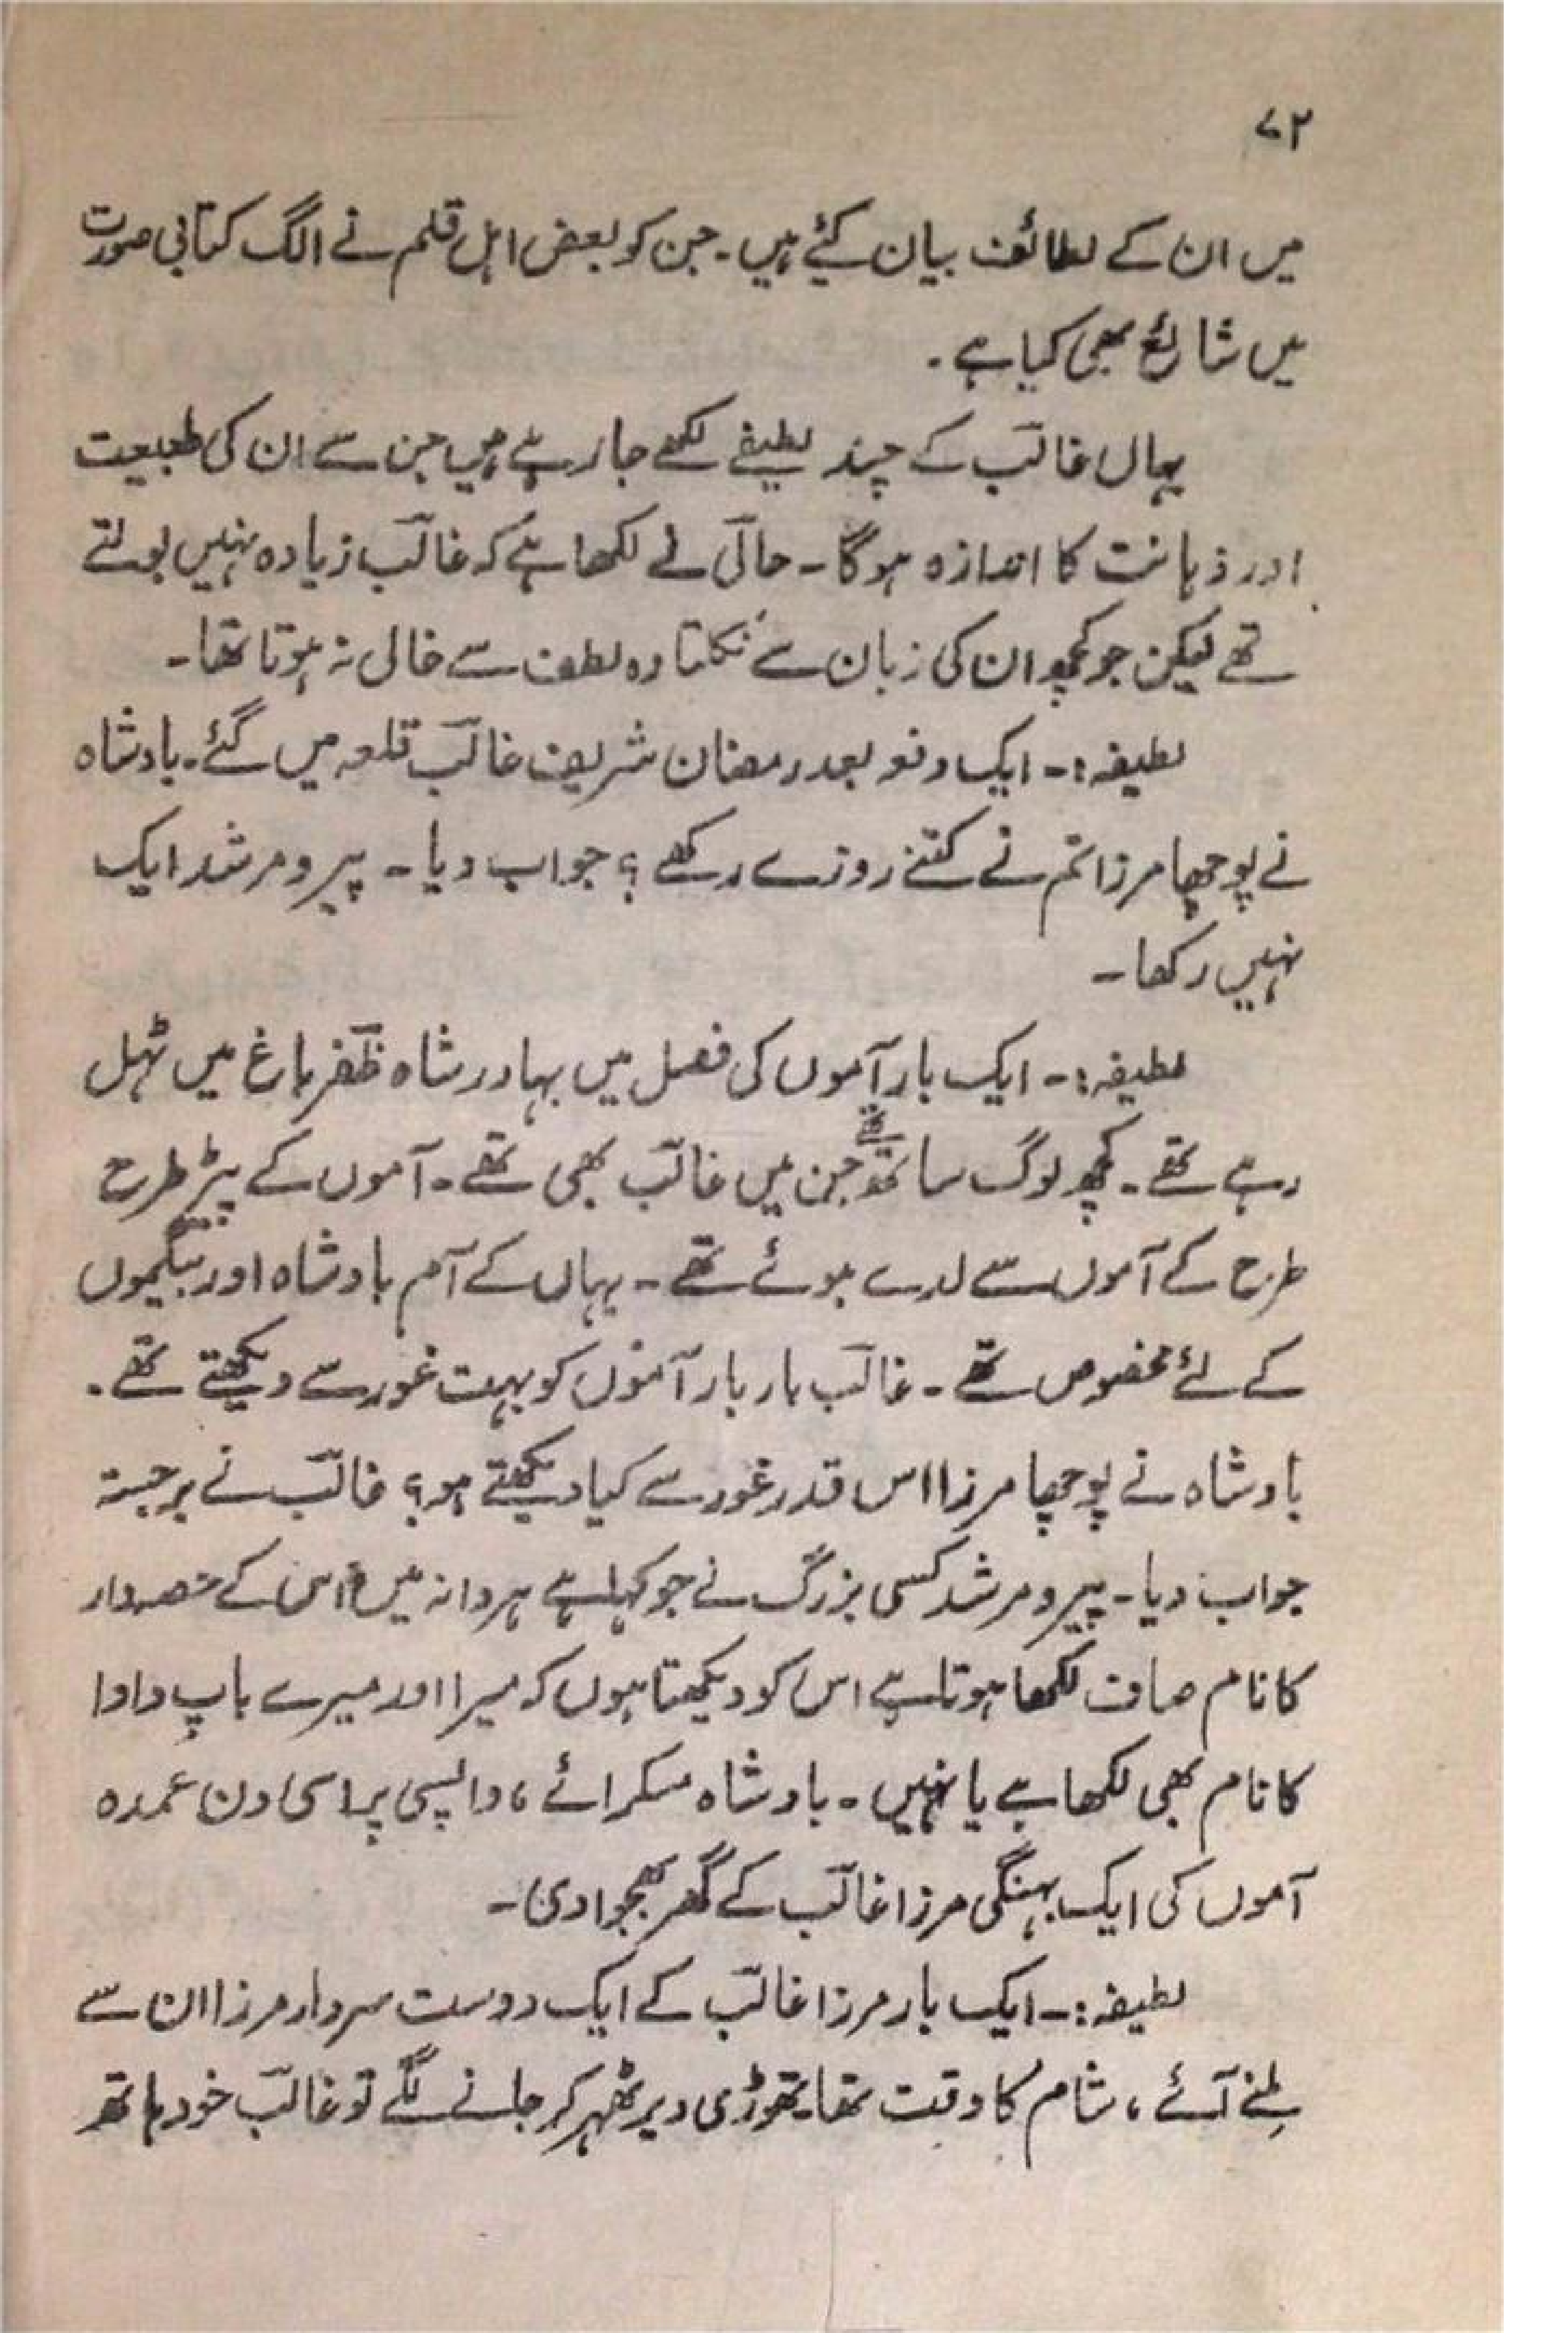 ۷۲
میں ان کے لطائف بیان کئے ہیں۔ جن کو بعض اہل قلم نے الگ کتابی صورت
میں شائع بھی کیا ہے۔
یہاں غالبؔ کے چند لطیفے لکھے جا رہے ہیں جن سے ان کی طبیعت
اور ذہانت کا اندازہ ہوگا۔ حالیؔ نے لکھا ہے کہ غالبؔ زیادہ نہیں بولتے
تھے لیکن جو کچھ ان کی زبان سے نکلتا وہ لطف سے خالی نہ ہوتا تھا۔
لطیفہ:۔ ایک دفعہ بعد رمضان شریف غالبؔ قلعہ میں گئے۔ بادشاہ
نے پوچھا مرزا تم نے کتنے روزے رکھے؟ جواب دیا۔ پیر و مرشد ایک
نہیں رکھا۔
لطیفہ:۔ ایک بار آموں کی فصل میں بہادر شاہ ظفرؔ باغ میں ٹہل
رہے تھے۔ کچھ لوگ ساتھ تھے جن میں غالبؔ بھی تھے۔ آموں کے پیڑ طرح
طرح کے آموں سے لدے ہوئے تھے۔ یہاں کے آم بادشاہ اور بیگموں
کے لئے مخصوص تھے۔ غالبؔ بار بار آموں کو بہت غور سے دیکھتے تھے۔
بادشاہ نے پوچھا مرزا اس قدر غور سے کیا دیکھتے ہو؟ غالبؔ نے برجستہ
جواب دیا۔ پیر و مرشد کسی بزرگ نے جو کہا ہے ہر دانہ میں اس کے حصہ دار
کا نام صاف لکھا ہوتا ہے اس کو دیکھتا ہوں کہ میرا اور میرے باپ دادا
کا نام بھی لکھا ہے یا نہیں۔ بادشاہ مسکرائے، واپسی پر اسی دن عمدہ
آموں کی ایک بہنگی مرزا غالبؔ کے گھر بھجوا دی۔
لطیفہ:۔ ایک بار مرزا غالبؔ کے ایک دوست سردار مرزا ان سے
ملنے آئے، شام کا وقت تھا۔ تھوڑی دیر ٹھہر کر جانے لگے تو غالبؔ خود ہاتھ